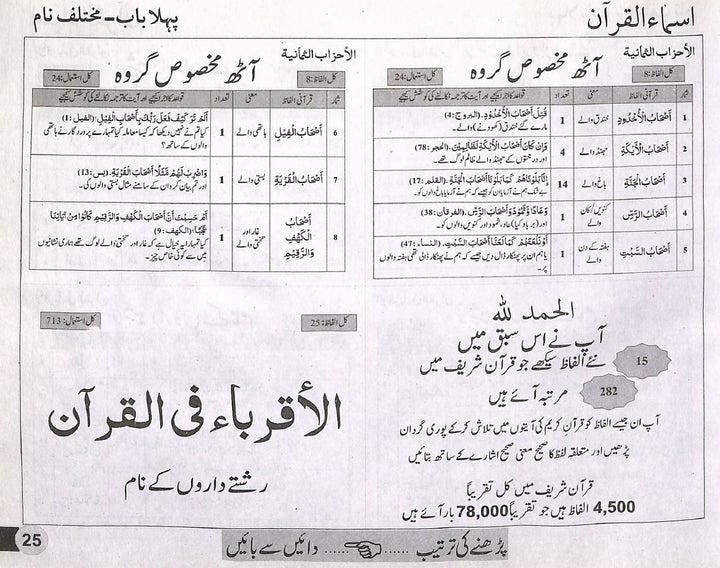 اسماء القرآن
پہلا باب – مختلف نام
الأحزاب الثمانية
آٹھ مخصوص گروہ
کل الفاظ: 8
کل استعمال: 24
شمار
قرآنی الفاظ
معنی
تعداد
قواعد کا اجرا کیجیے اور آیت کا ترجمہ نکالنے کی کوشش کیجیے
1
أَصْحَابُ الْأُخْدُودِ
خندق والے
1
قُتِلَ أَصْحَابُ الْأُخْدُودِ. (البروج: 4)
مارے گئے خندق (کھودنے) والے.
2
أَصْحَابُ الْأَيْكَةِ
جھنڈ والے
4
وَإِنْ كَانَ أَصْحَابُ الْأَيْكَةِ لَظَالِمِينَ. (الحجر: 78)
اور درختوں کے جھنڈ والے ظالم لوگ تھے.
3
أَصْحَابُ الْجَنَّةِ
باغ والے
14
إِنَّا بَلَوْنَاهُمْ كَمَا بَلَوْنَا أَصْحَابَ الْجَنَّةِ. (القلم: 17)
بے شک ہم نے آزمایا ان کو جیسے کہ ہم نے آزمایا باغ والوں کو.
4
أَصْحَابُ الرَّسِّ
کنویں/کان والے
1
وَعَادًا وَثَمُودَ وَأَصْحَابَ الرَّسِّ. (الفرقان: 38)
اور (برباد کیا) عاد، ثمود اور کنویں والوں کو.
5
أَصْحَابُ السَّبْتِ
ہفتہ کے دن والے
1
أَوْ نَلْعَنَهُمْ كَمَا لَعَنَّا أَصْحَابَ السَّبْتِ. (النساء: 47)
یا ہم ان پر پھٹکار ڈال دیں جیسے کہ ہم نے پھٹکار ڈالی تھی ہفتہ والوں پر.
الأحزاب الثمانية
آٹھ مخصوص گروہ
کل الفاظ: 8
کل استعمال: 24
شمار
قرآنی الفاظ
معنی
تعداد
قواعد کا اجرا کیجیے اور آیت کا ترجمہ نکالنے کی کوشش کیجیے
6
أَصْحَابُ الْفِيلِ
ہاتھی والے
1
أَلَمْ تَرَ كَيْفَ فَعَلَ رَبُّكَ بِأَصْحَابِ الْفِيلِ. (الفيل: 1)
کیا تم نے نہیں دیکھا کہ کیسا معاملہ کیا تمہارے پروردگار نے ہاتھی والوں کے ساتھ؟
7
أَصْحَابُ الْقَرْيَةِ
بستی والے
1
وَاضْرِبْ لَهُمْ مَثَلًا أَصْحَابَ الْقَرْيَةِ. (يس: 13)
اور تم بیان کرو ان کے سامنے مثال بستی والوں کی.
8
أَصْحَابُ الْكَهْفِ وَالرَّقِيمِ
غار اور تختی والے
1
أَمْ حَسِبْتَ أَنَّ أَصْحَابَ الْكَهْفِ وَالرَّقِيمِ كَانُوا مِنْ آيَاتِنَا عَجَبًا. (الكهف: 9)
کیا تمہارا یہ خیال ہے کہ غار اور تختی والے لوگ تھے ہماری نشانیوں میں سے کوئی خاص چیز.
الحمد للہ
آپ نے اس سبق میں
15 نئے الفاظ سیکھے جو قرآن شریف میں
282 مرتبہ آئے ہیں
آپ ان جیسے الفاظ کو قرآن کریم کی آیتوں میں تلاش کر کے پوری گردان
پڑھیں اور متعلقہ لفظ کا صحیح معنی صحیح اشارے کے ساتھ بتائیں
قرآن شریف میں کل تقریباً
4,500 الفاظ ہیں جو تقریباً 78,000 بار آئے ہیں
کل الفاظ: 25
کل استعمال: 713
الأقرباء في القرآن
رشتے داروں کے نام
پڑھنے کی ترتیب ...... ...... دائیں سے بائیں
25